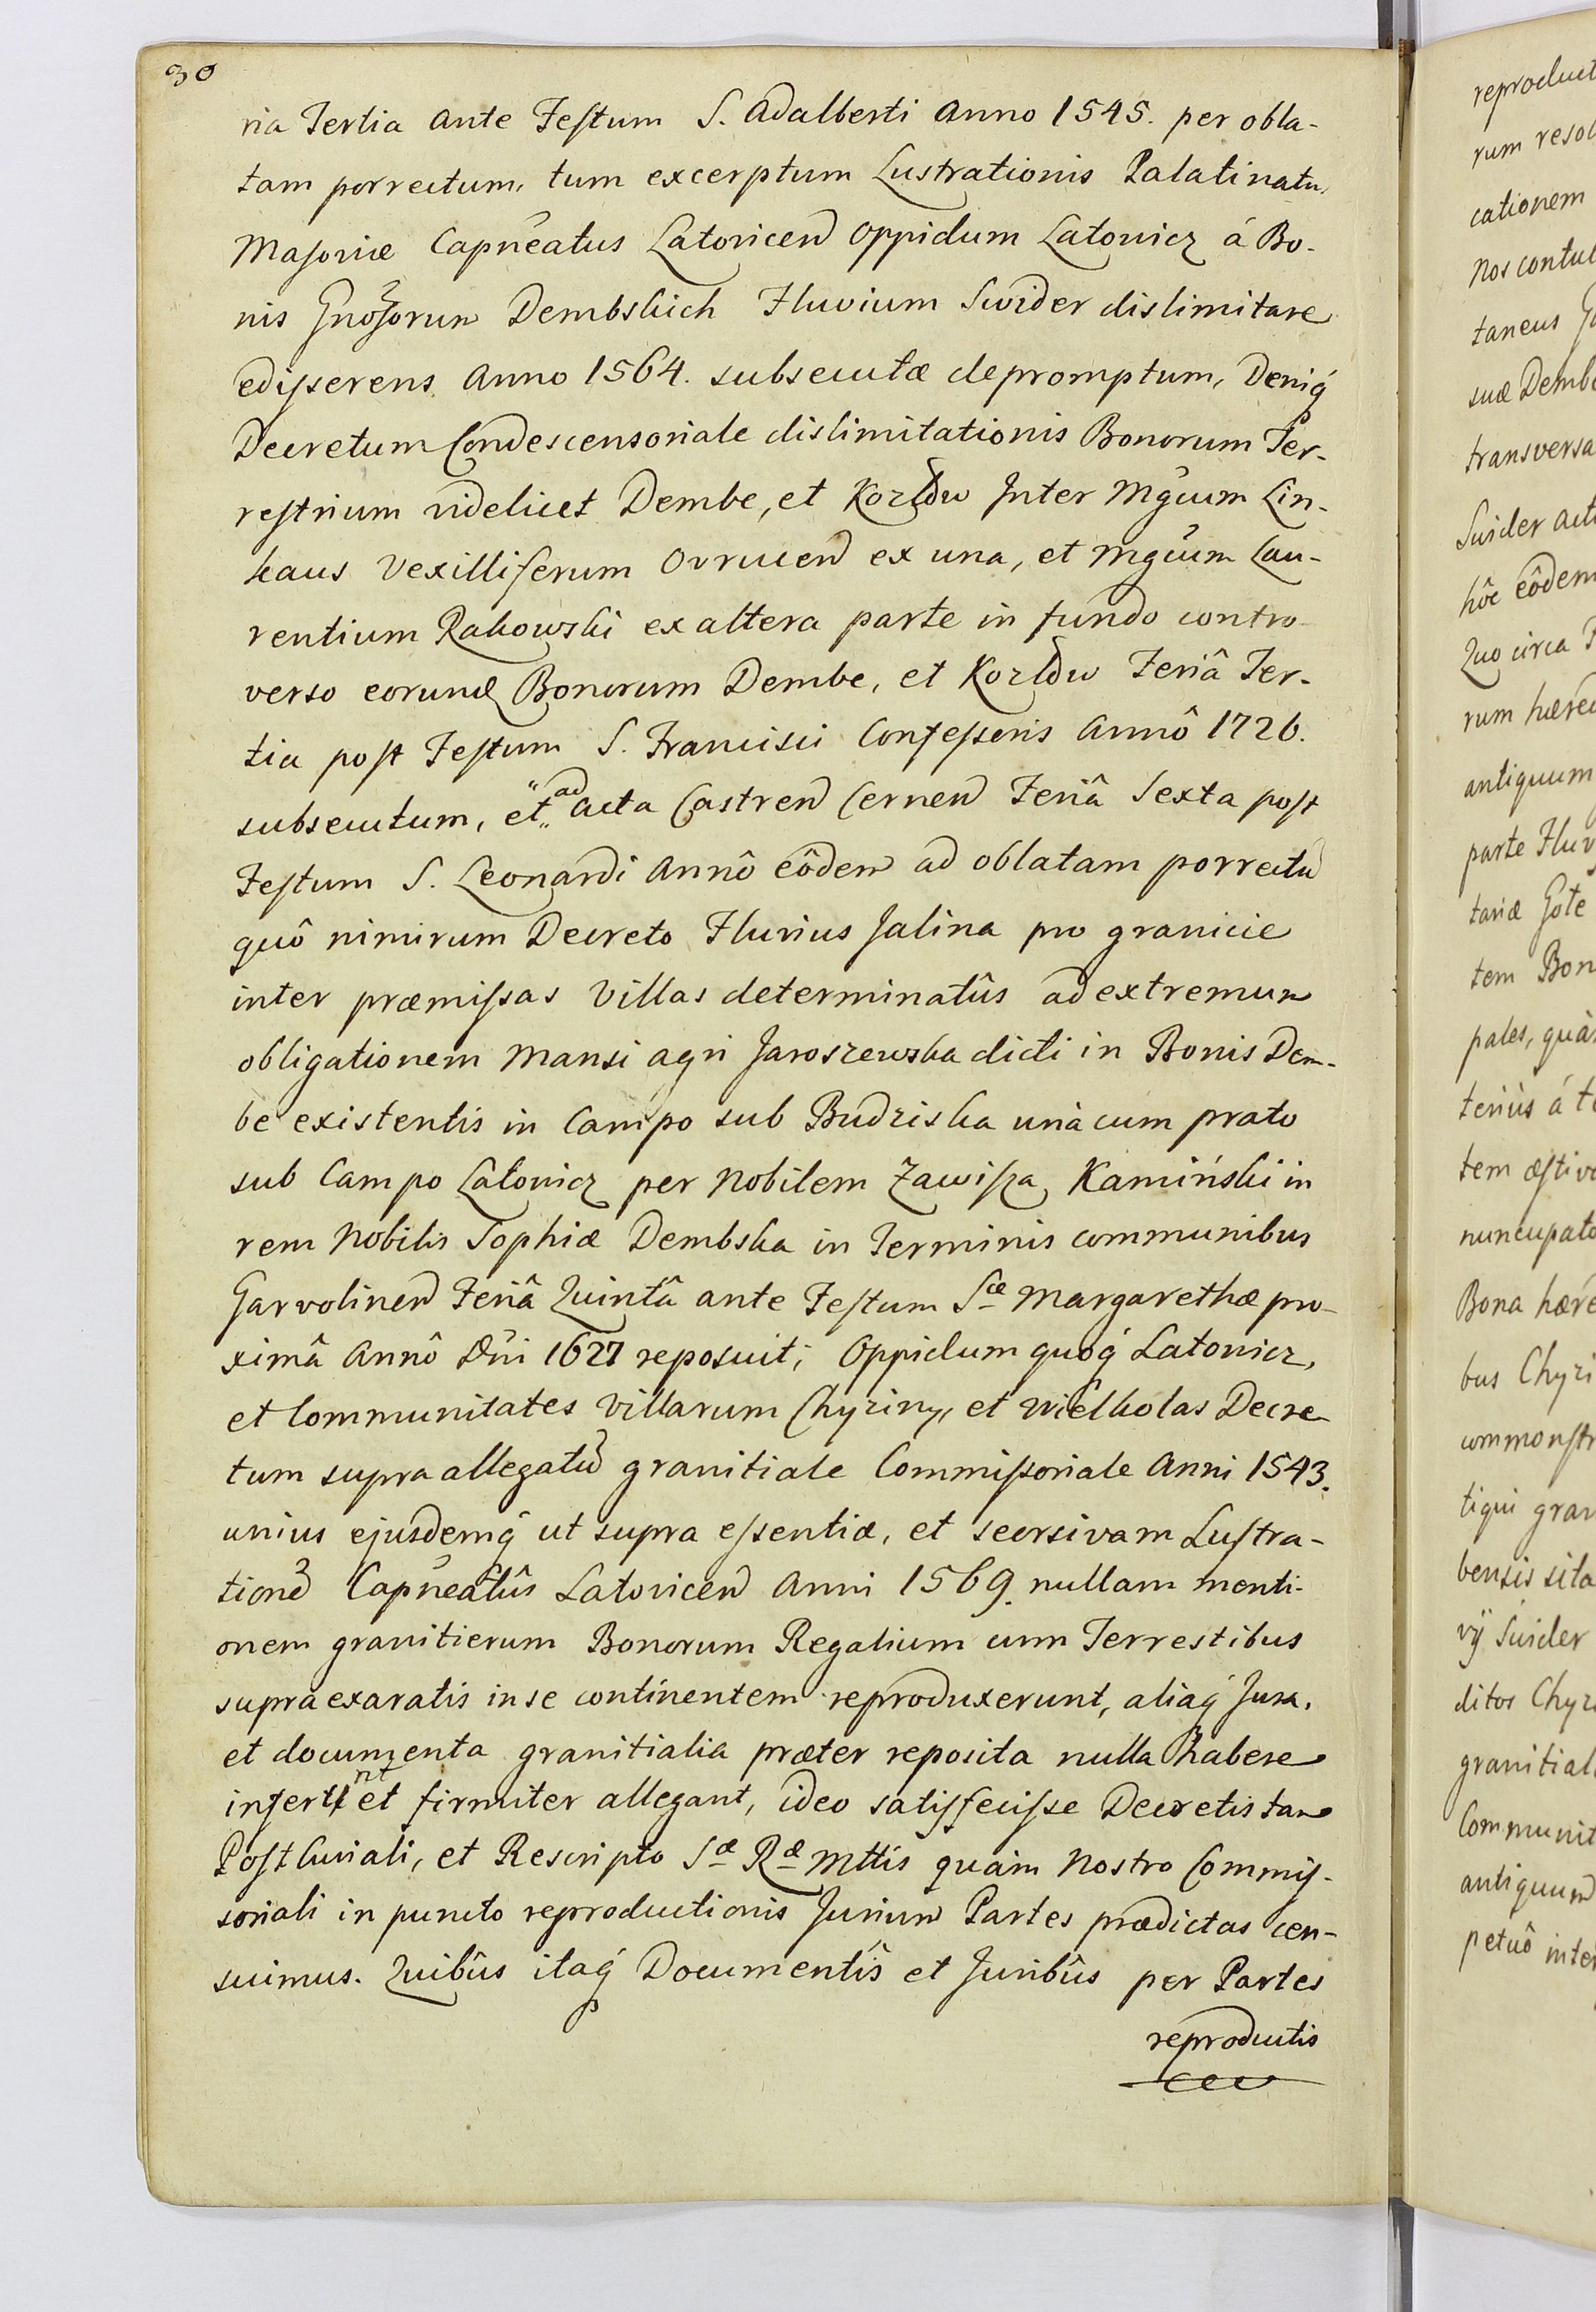 30
ria Tertia ante Festum S. Adalberti Anno 1545. per obla-
tam porrectum, tum excerptum Lustrationis Palatinatu,
Masoviæ Capñeatus Latovicen Oppidum Latovicz á Bo-
nis Gnosorum Dembskich Fluvium Swider dislimitare
edisserens Anno 1564. subsecutæ depromptum, Deniq́
Decretum Condescensoriale dislimitationis Bonorum Ter-
restrium videlicet Dembe, et Kozłów Inter Mgcum Lin-
kaus Vexilliferum Ovrucen ex una, et Mgcum Lau-
rentium Rakowski ex altera parte in fundo contro-
verso eorund Bonorum Dembe, et Kozłów Feriâ Ter-
tia post Festum S. Francisci Confessoris Annô 1726.
subsecutum, et ad Acta Castren Cernen Feriâ Sexta post
Festum S. Leonardi Annô eôdem ad oblatam porrectu
quô nimirum Decreto Fluvius Jalina pro granicie
inter præmissas Villas determinatûs ad extremum
obligationem Mansi agri Jaroszewska dicti in Bonis Dem-
be existentis in Campo sub Budziska unà cum prato
sub Campo Latovicz per Nobilem Zawisza Kamiński in
rem Nobilis Sophiæ Dembska in Terminis communibus
Garvolinen Feriâ Quintâ ante Festum Scæ Margarethæ pro-
ximâ Annô Dñi 1627 reposuit; Oppidum quoq́ Latovicz,
et Communitates Villarum Chyziny, et Wielholas Decre-
tum supra allegatu granitiale Commissoriale Anni 1543.
unius ejusdemq́ ut supra essentiæ, et seorsivam Lustra-
tione Capñeatûs Latovicen Anni 1569. nullam menti-
onem granitierum Bonorum Regalium cum Terrestibus
supra exaratis in se continentem reproduxerunt, aliaq́ Jura,
et documenta granitialia præter reposita nulla habere
inferunt et firmiter allegant, ideo satisfecisse Decretis tam
PostCuriali, et Rescripto Sæ Ræ Mttis quàm Nostro Commis-
soriali in puncto reproductionis Jurium Partes prædictas cen-
suimus. Quibûs itaq́ Documentîs et Juribûs per Partes
reproductis
reproduct
rum resol
cationem
Nos contul
taneus
suæ Demb
transversa
Swider
hôc eôdem
Quo circa
rum hæred
antiquum
parte Fluv
tariæ
tem Bon
pales, quàm
teriùs á
tem æstiv
nuncupato
Bona hære
bus Chyzi
commonstr
tiqui gran
bensis sita
vÿ Swider
ditos Chyz
granitial
Communit
antiquum
petuô inter